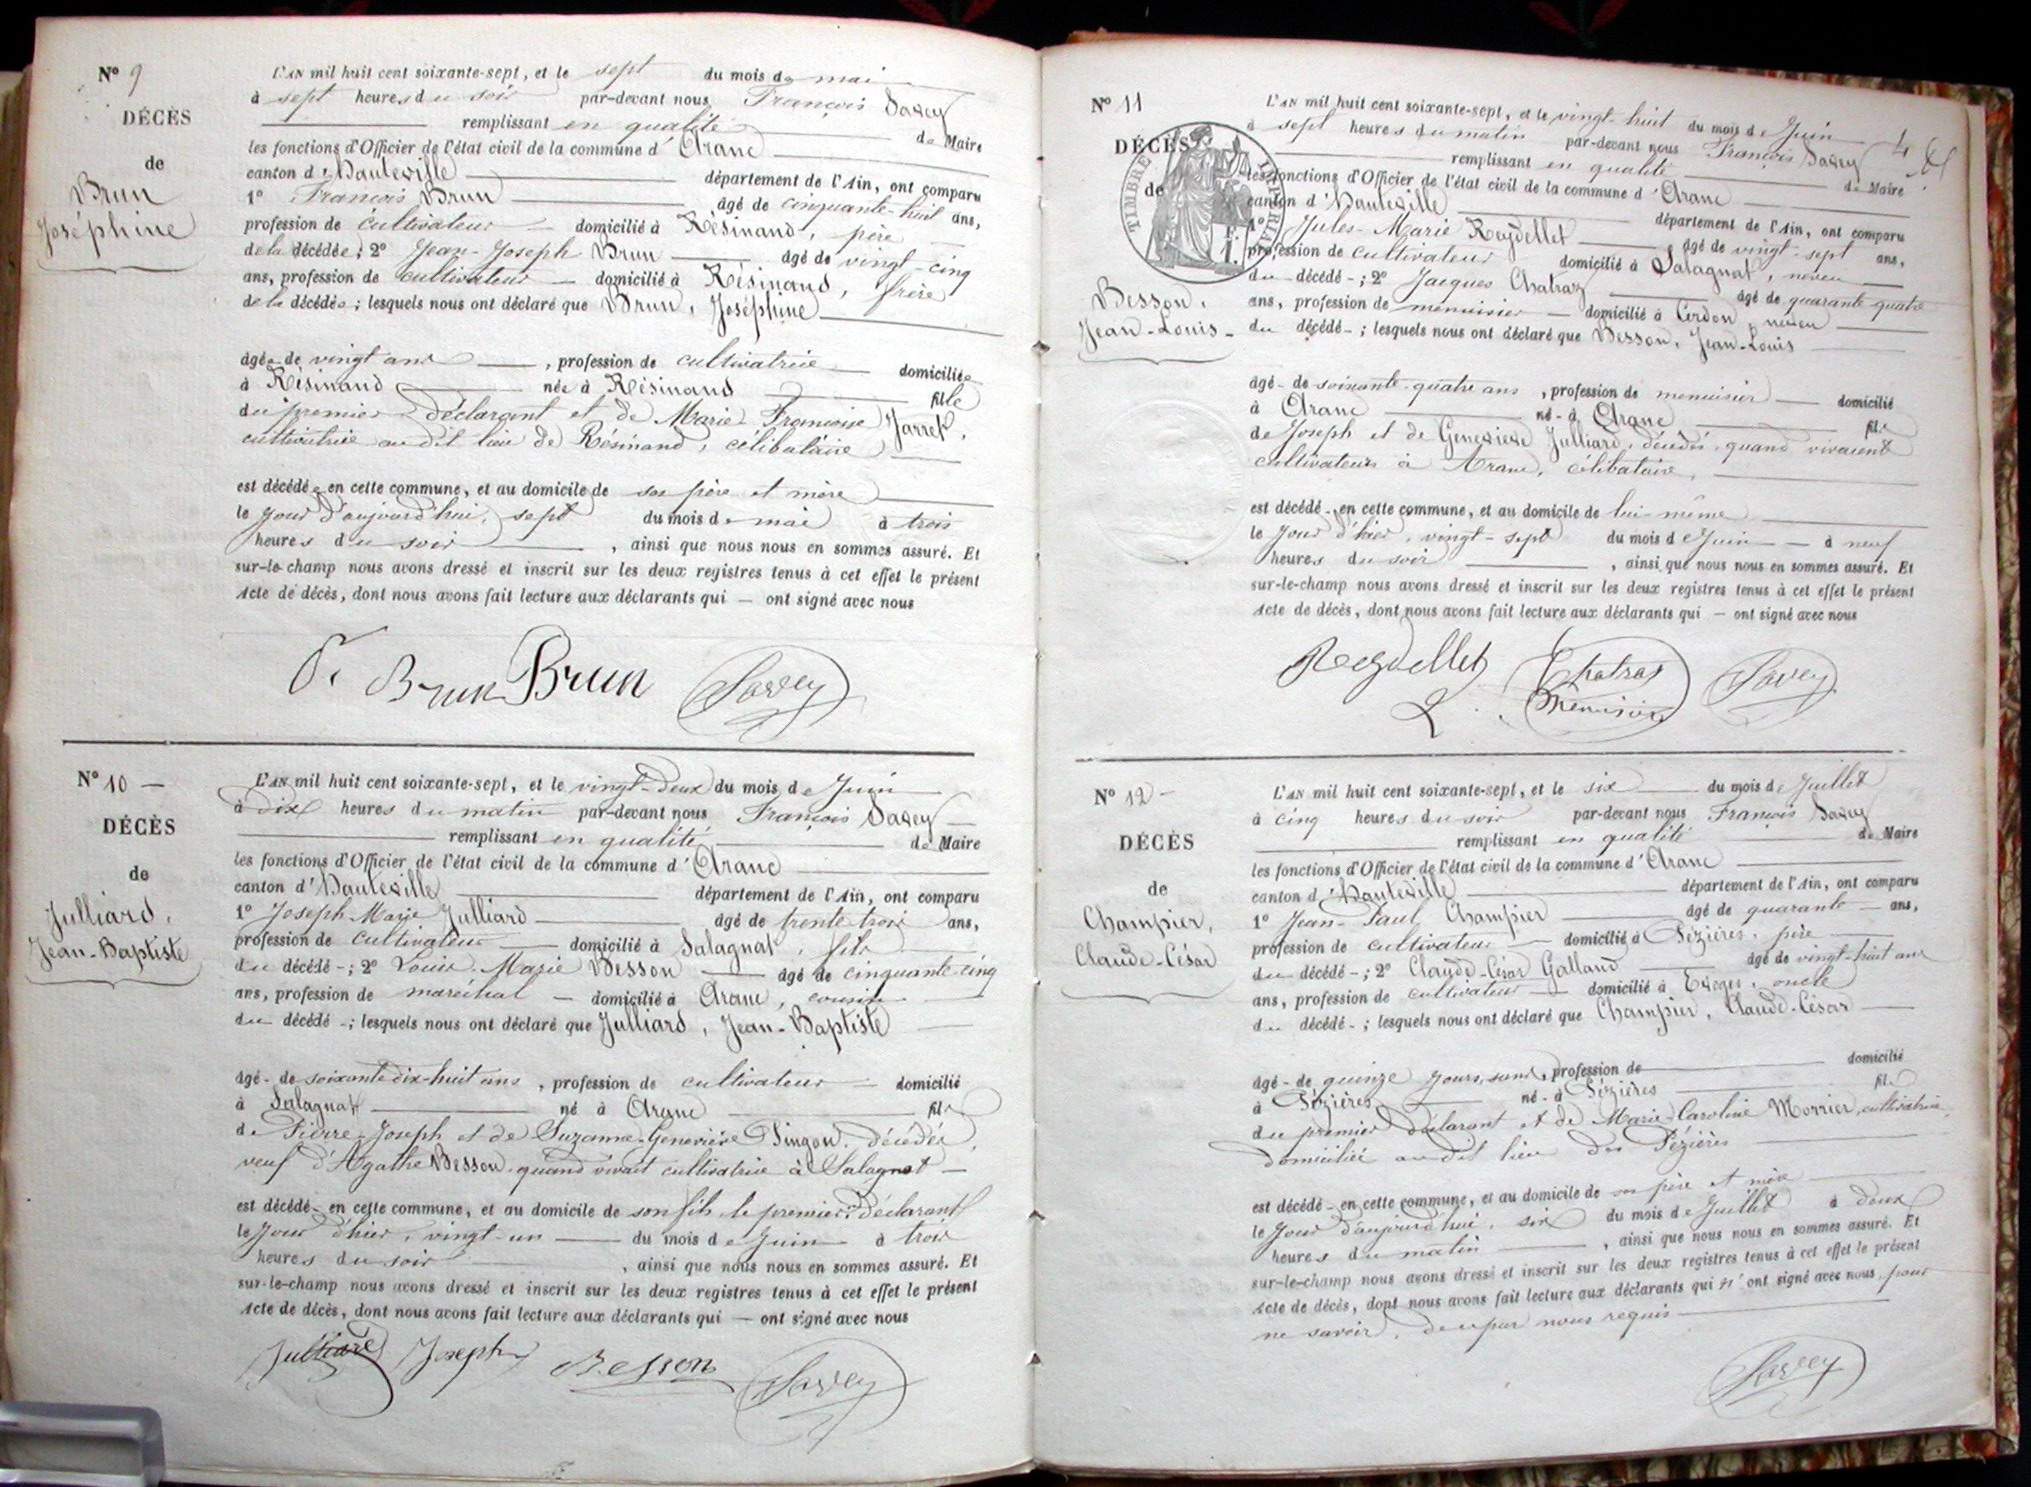 N° 9
DÉCÈS
de
Brun
Joséphine
L'AN mil huit cent soixante-sept, et le sept du mois de mai
à sept heures du soir par-devant nous François Savey
remplissant en qualité de Maire
les fonctions d'Officier de l'état civil de la commune d'Aranc
canton d'Hauteville département de l'Ain, ont comparu
1° François Brun âgé de cinquante-huit ans,
profession de cultivateur domicilié à Résinand, père
de la décédée; 2° Jean-Joseph Brun âgé de vingt-cinq
ans, profession de cultivateur domicilié à Résinand, frère
de la décédée; lesquels nous ont déclaré que Brun, Joséphine
âgée de vingt ans, profession de cultivatrice domiciliée
à Résinand née à Résinand fille
du premier déclarant et de Marie Françoise Jarret,
cultivatrice au dit lieu de Résinand, célibataire
est décédée en cette commune, et au domicile de ses père et mère
le jour d'aujourd'hui, sept du mois de mai à trois
heures du soir, ainsi que nous nous en sommes assuré. Et
sur-le-champ nous avons dressé et inscrit sur les deux registres tenus à cet effet le présent
Acte de décès, dont nous avons fait lecture aux déclarants qui — ont signé avec nous
Brun Brun Savey
N° 10 —
DÉCÈS
de
Julliard,
Jean-Baptiste
L'AN mil huit cent soixante-sept, et le vingt-deux du mois de Juin
à dix heures du matin par-devant nous François Savey
remplissant en qualité de Maire
les fonctions d'Officier de l'état civil de la commune d'Aranc
canton d'Hauteville département de l'Ain, ont comparu
1° Joseph-Marie Julliard âgé de trente-trois ans,
profession de cultivateur domicilié à Salagnat, fils
du décédé-; 2° Louis-Marie Besson âgé de cinquante-cinq
ans, profession de maréchal — domicilié à Aranc, cousin
du décédé-; lesquels nous ont déclaré que Julliard, Jean-Baptiste
âgé- de soixante dix-huit ans, profession de cultivateur domicilié
à Salagnat né à Aranc fils
de Pierre-Joseph et de Suzanne-Geneviève Pingon, décédés,
veuf d'Agathe Besson, quand vivait cultivatrice à Salagnat —
est décédé- en cette commune, et au domicile de son fils le premier déclarant
le jour d'hier, vingt-un du mois de Juin à trois
heures du soir, ainsi que nous nous en sommes assuré. Et
sur-le-champ nous avons dressé et inscrit sur les deux registres tenus à cet effet le présent
Acte de décès, dont nous avons fait lecture aux déclarants qui — ont signé avec nous
Julliard Joseph Besson Savey
N° 11
DÉCÈS
de
TIMBRE IMPÉRIAL
Besson,
Jean-Louis-
4
L'AN mil huit cent soixante-sept, et le vingt-huit du mois de Juin
à sept heures du matin par-devant nous François Savey
remplissant en qualité de Maire
les fonctions d'Officier de l'état civil de la commune d'Aranc
canton d'Hauteville département de l'Ain, ont comparu
1° Jules-Marie Reydellet âgé de vingt-sept ans,
profession de cultivateur domicilié à Salagnat, neveu
du décédé-; 2° Jacques Chatraz âgé de quarante-quatre
ans, profession de menuisier — domicilié à Cerdon, neveu
du décédé-; lesquels nous ont déclaré que Besson, Jean-Louis
âgé- de soixante-quatre ans, profession de menuisier — domicilié
à Aranc né- à Aranc fils
de Joseph et de Geneviève Julliard, décédés, quand vivaient
cultivateurs à Aranc, célibataire,
est décédé- en cette commune, et au domicile de lui-même
le jour d'hier, vingt-sept du mois de Juin — à neuf
heures du soir, ainsi que nous nous en sommes assuré. Et
sur-le-champ nous avons dressé et inscrit sur les deux registres tenus à cet effet le présent
Acte de décès, dont nous avons fait lecture aux déclarants qui — ont signé avec nous
Reydellet Chatras Savey
Menuisier
N° 12 -
DÉCÈS
de
Champier,
Claude-César
L'AN mil huit cent soixante-sept, et le six du mois de Juillet
à cinq heures du soir par-devant nous François Savey
remplissant en qualité de Maire
les fonctions d'Officier de l'état civil de la commune d'Aranc
canton d'Hauteville département de l'Ain, ont comparu
1° Jean-Paul Champier âgé de quarante — ans,
profession de cultivateur — domicilié à Pézières, père
du décédé-; 2° Claude-César Galland âgé de vingt-huit ans
ans, profession de cultivateur — domicilié à Evoges, oncle
du décédé-; lesquels nous ont déclaré que Champier, Claude-César
âgé- de quinze jours, sans, profession de domicilié
à Pézières né- à Pézières fils
du premier déclarant et de Marie-Caroline Morrier, cultivatrice,
domiciliée au dit lieu des Pézières
est décédé- en cette commune, et au domicile de ses père et mère
le jour d'aujourd'hui, six du mois de Juillet à deux
heures du matin, ainsi que nous nous en sommes assuré. Et
sur-le-champ nous avons dressé et inscrit sur les deux registres tenus à cet effet le présent
Acte de décès, dont nous avons fait lecture aux déclarants qui n'ont signé avec nous, pour
ne savoir, de ce par nous requis
Savey